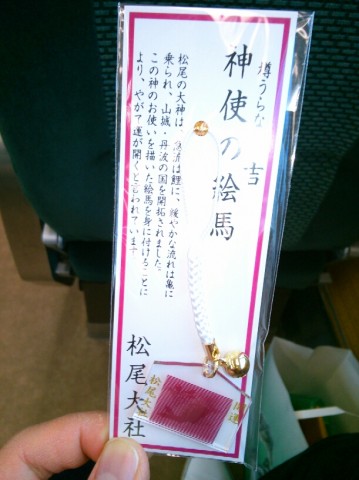 樽うらな
吉
神使の絵馬
松尾の大神は、急流は鯉に、緩やかな流れは亀に
乗られ、山城・丹波の国を開拓されました。
この神のお使いを描いた絵馬を身に付けることに
より、やがて運が開くと言われています。
松尾大社
開運
松尾大